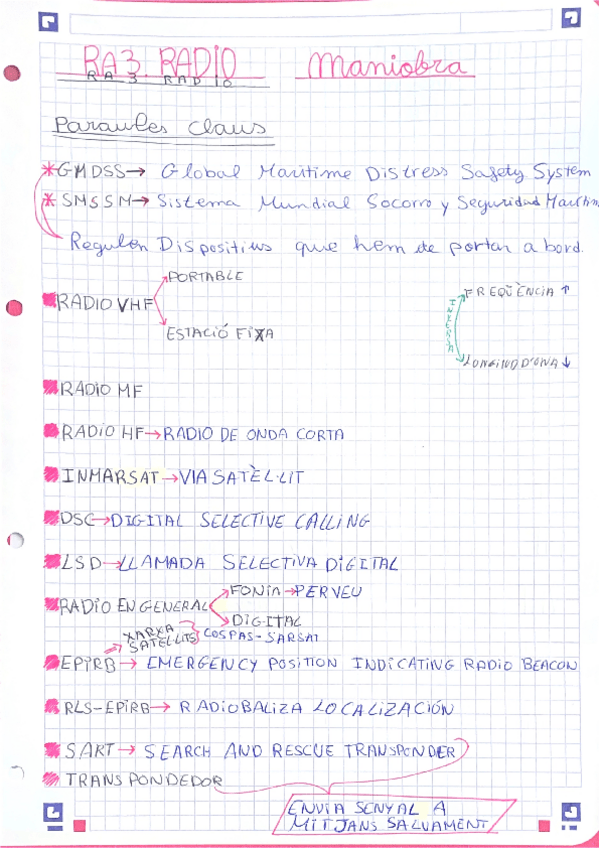 RA3 RADIO Maniobra
RA3 RADIO
Paraules claus
*GMDSS→ Global Maritime Distress Safety System
*SMSSM→ Sistema Mundial Socorro y Seguridad Maritim
Regulen Dispositius que hem de portar a bord.
PORTABLE
RADIO VHF
ESTACIÓ FIXA
FREQÜÈNCIA ↑
INVERSA
LONGITUD D'ONA ↓
RADIO MF
RADIO HF→RADIO DE ONDA CORTA
INMARSAT→VIA SATÈL·LIT
DSC→DIGITAL SELECTIVE CALLING
LSD→LLAMADA SELECTIVA DIGITAL
FONIA→PER VEU
RADIO EN GENERAL
DIGITAL
XARXA SATÈL·LITS COSPAS-SARSAT
EPIRB→ EMERGENCY POSITION INDICATING RADIO BEACON
RLS-EPIRB→ RADIOBALIZA LOCALIZACIÓN
SART→ SEARCH AND RESCUE TRANSPONDER
TRANSPONDEDOR
ENVIA SENYAL A
MITJANS SALVAMENT